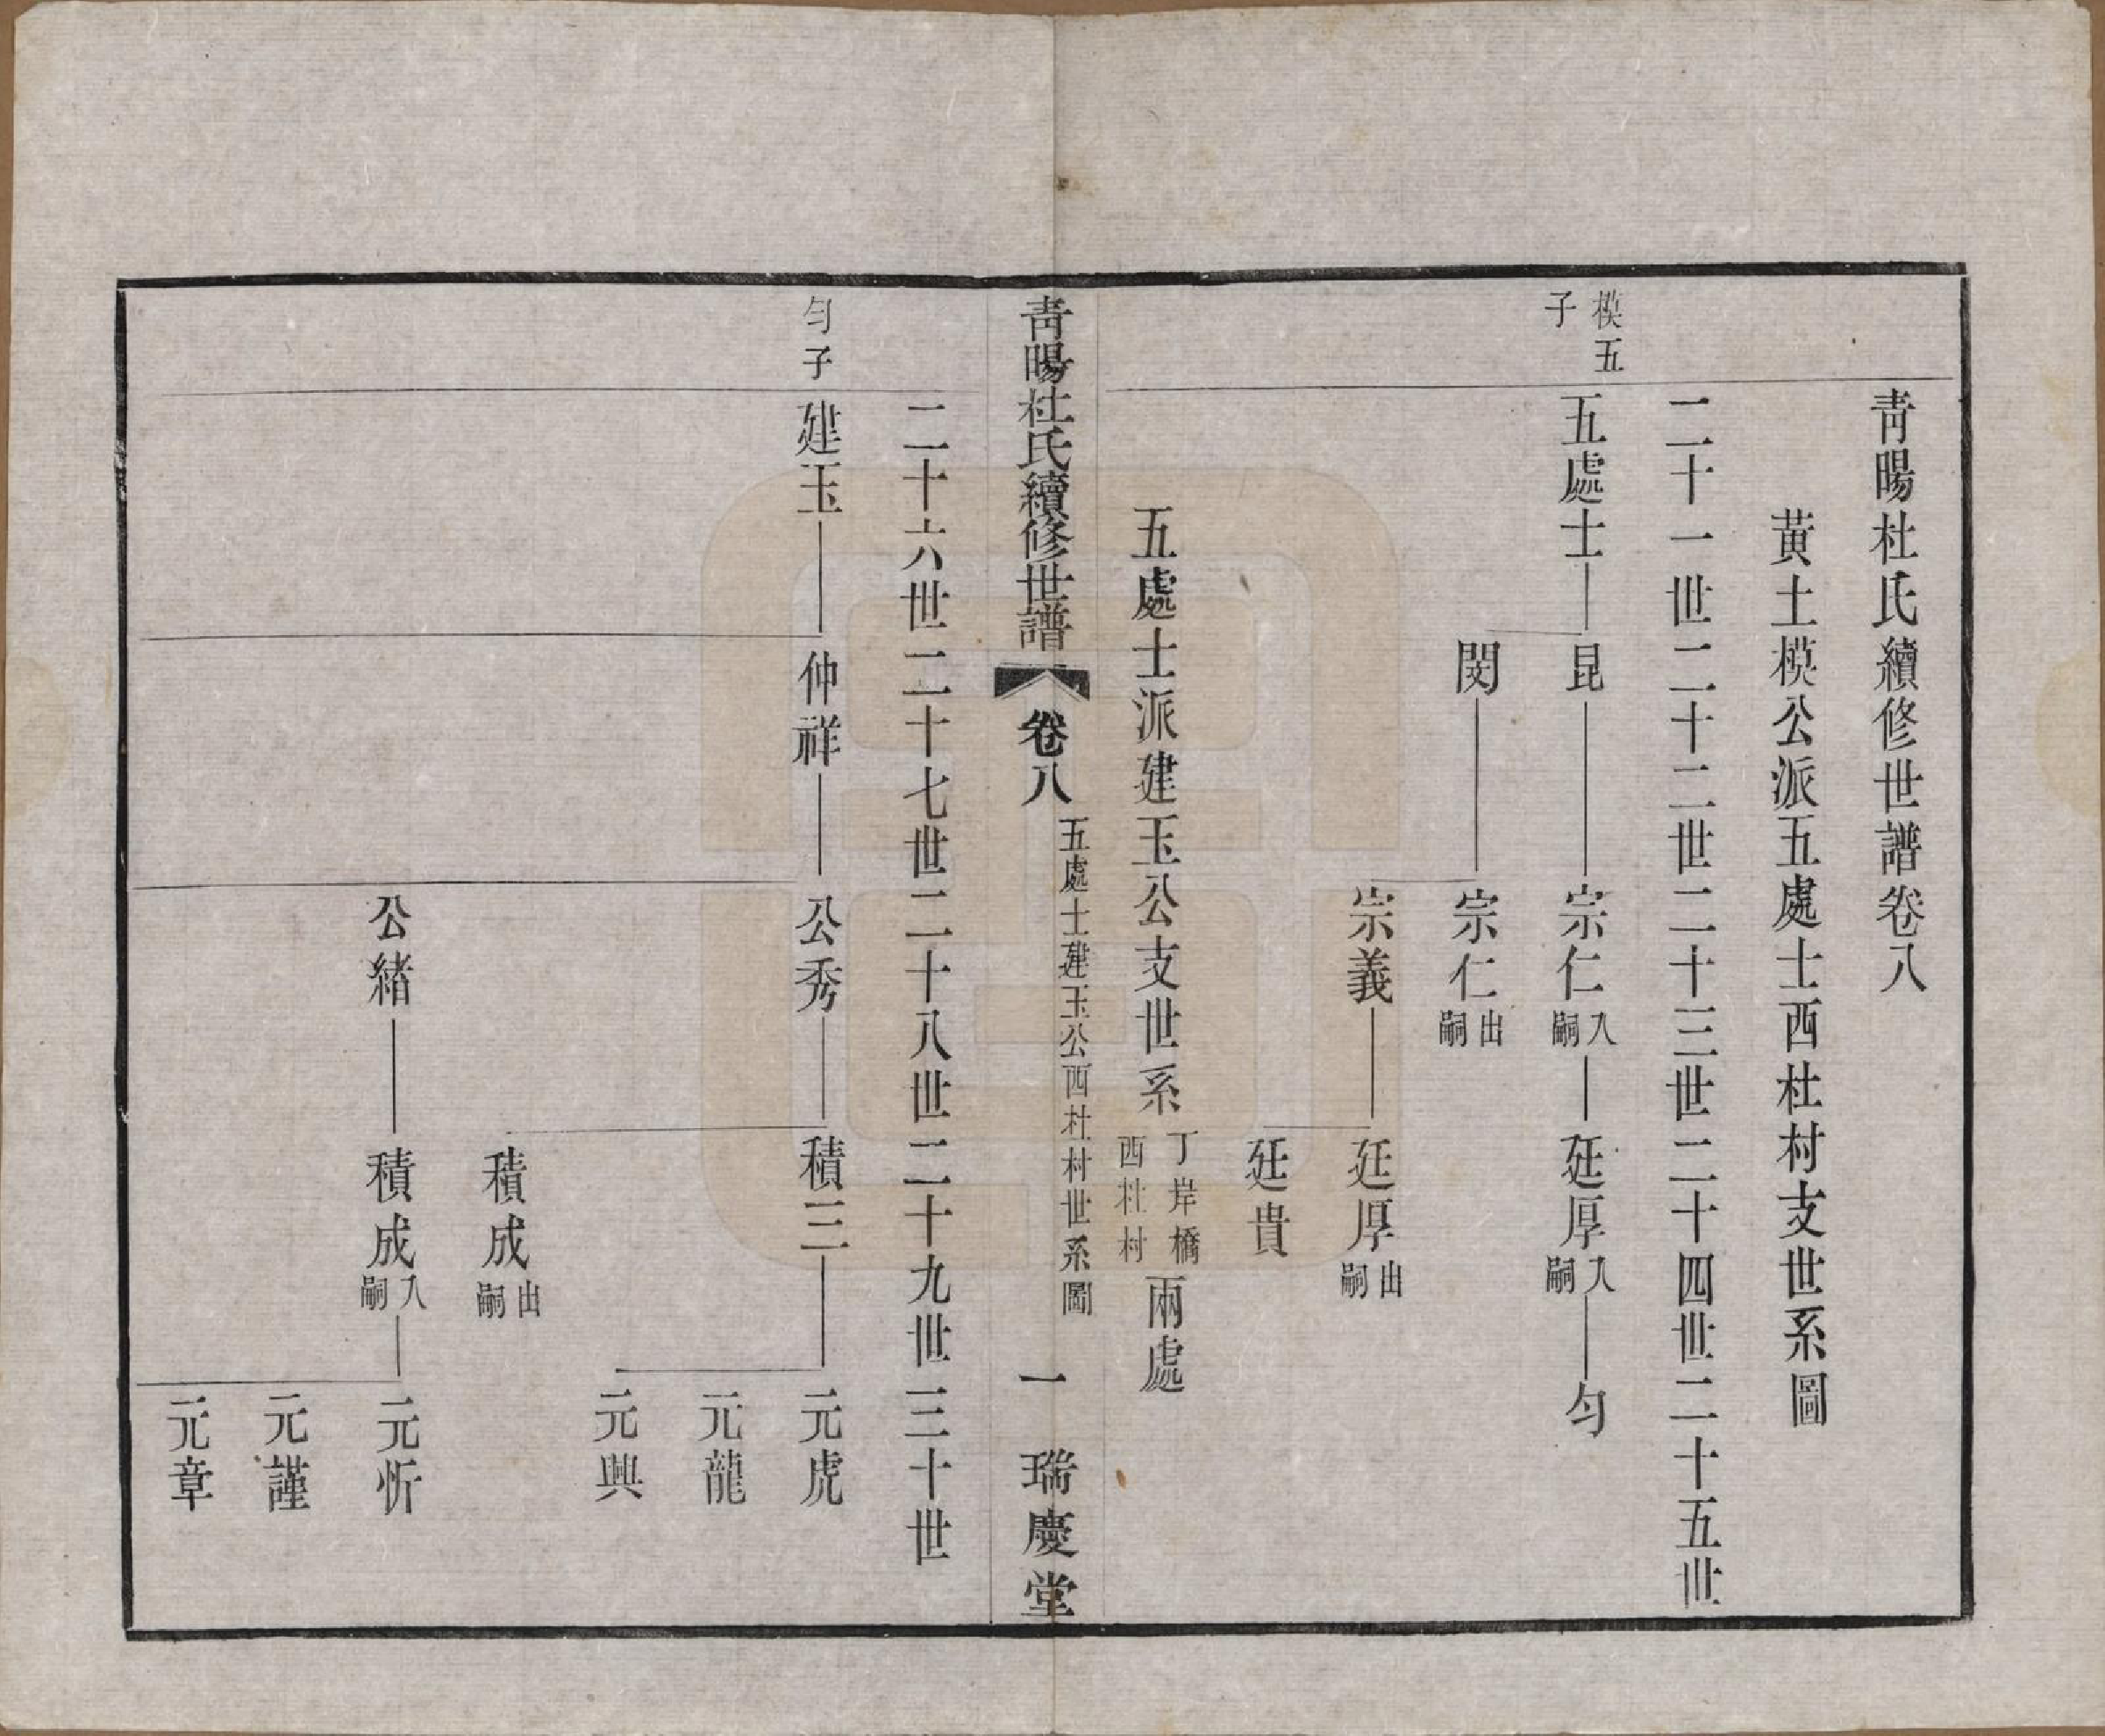 青暘杜氏續修世譜卷八
黃土模公派五處士西杜村支世系圖
二十一世二十二世二十三世二十四世二十五世
模五
子
五處士
昆
宗仁
入
嗣
廷厚
入
嗣
勻
閔
宗仁
出
嗣
宗義
廷厚
出
嗣
廷貴
五處士派建玉公支世系
丁岸橋
西杜村
兩處
青暘杜氏續修世譜
卷八
五處士建玉公西杜村世系圖
一
瑞慶堂
二十六世二十七世二十八世二十九世三十世
勻子
建玉
仲祥
公秀
積三
元虎
元龍
元興
積成
出
嗣
公緒
積成
入
嗣
元忻
元謹
元章